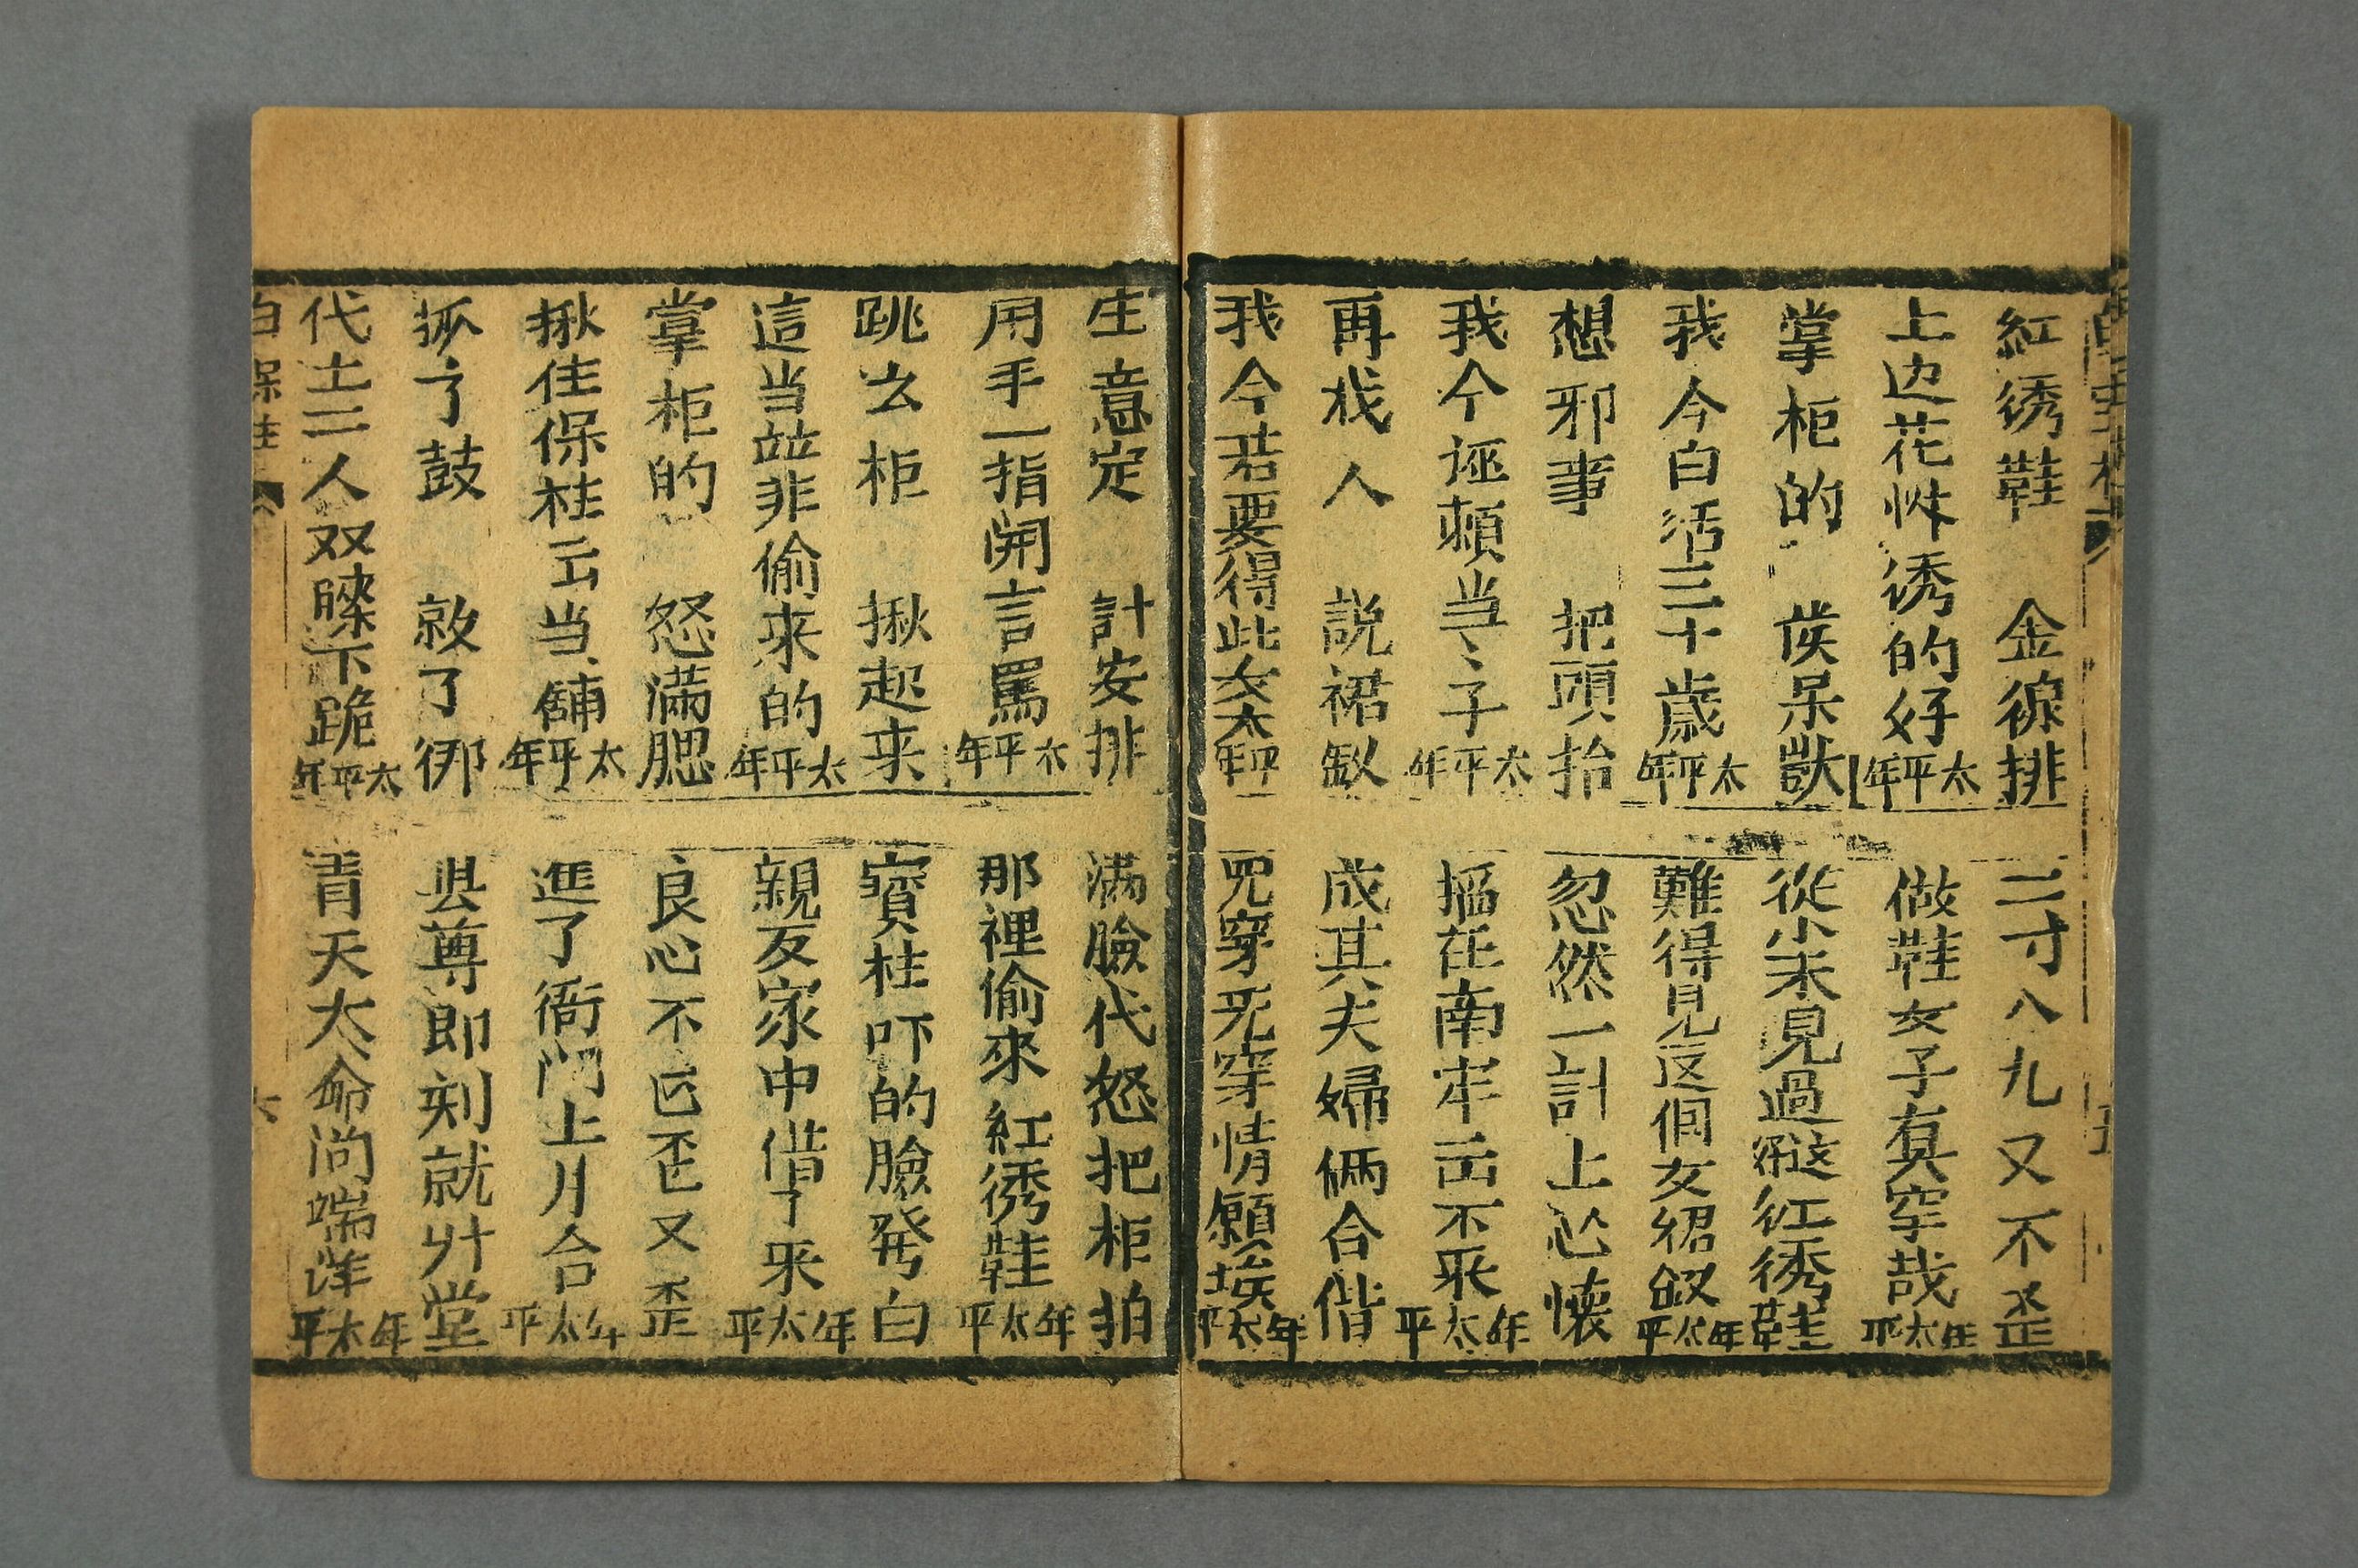 紅綉鞋　金線排
三寸八九又不歪
上边花样绣的好太平年
做鞋女子真罕哉年太平
掌柜的　發呆獃
從小未見過這紅綉鞋
我今白活三十歲太平年
難得見这個女裙釵年太平
想邪事　把頭抬
忽然一計上心懷
我今誣頼当〻子太平年
摳在南牢出不來年太平
再找人　説裙釵
成其夫婦倆合偕
我今若要得此女太平年
死穿死穿情願埃年太平
生意定　計安排
滿臉代怒把柜拍
用手一指開言罵太平年
那裡偷來紅綉鞋年太平
跳么柜　揪起来
寳柱吓的臉發白
這当並非偷来的太平年
親友家中借了来年太平
掌柜的　怒满腮
良心不正歪又歪
揪住保柱云当舖太平年
進了衙門上月台年太平
抓了鼓　敲了梆
县尊即刻就升堂
代上二人双膝下跪太平年
青天大命尚端详年太平
白保柱
六
五